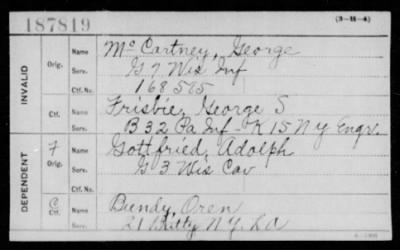 187819
(3-H-4)
INVALID
Orig. Name McCartney, George
Serv. G 7 Wis Inf
Ctf. No. 168575
Ctf. Name Frisbie, George S
Serv. B 32 Pa Inf - K 15 N Y Engrs.
DEPENDENT
F Orig. Name Gottfried, Adolph
Serv. G 3 Wis Cav
Ctf. No.
C Ctf. Name Bundy, Oren
Serv. 21 Btty N.Y. L A